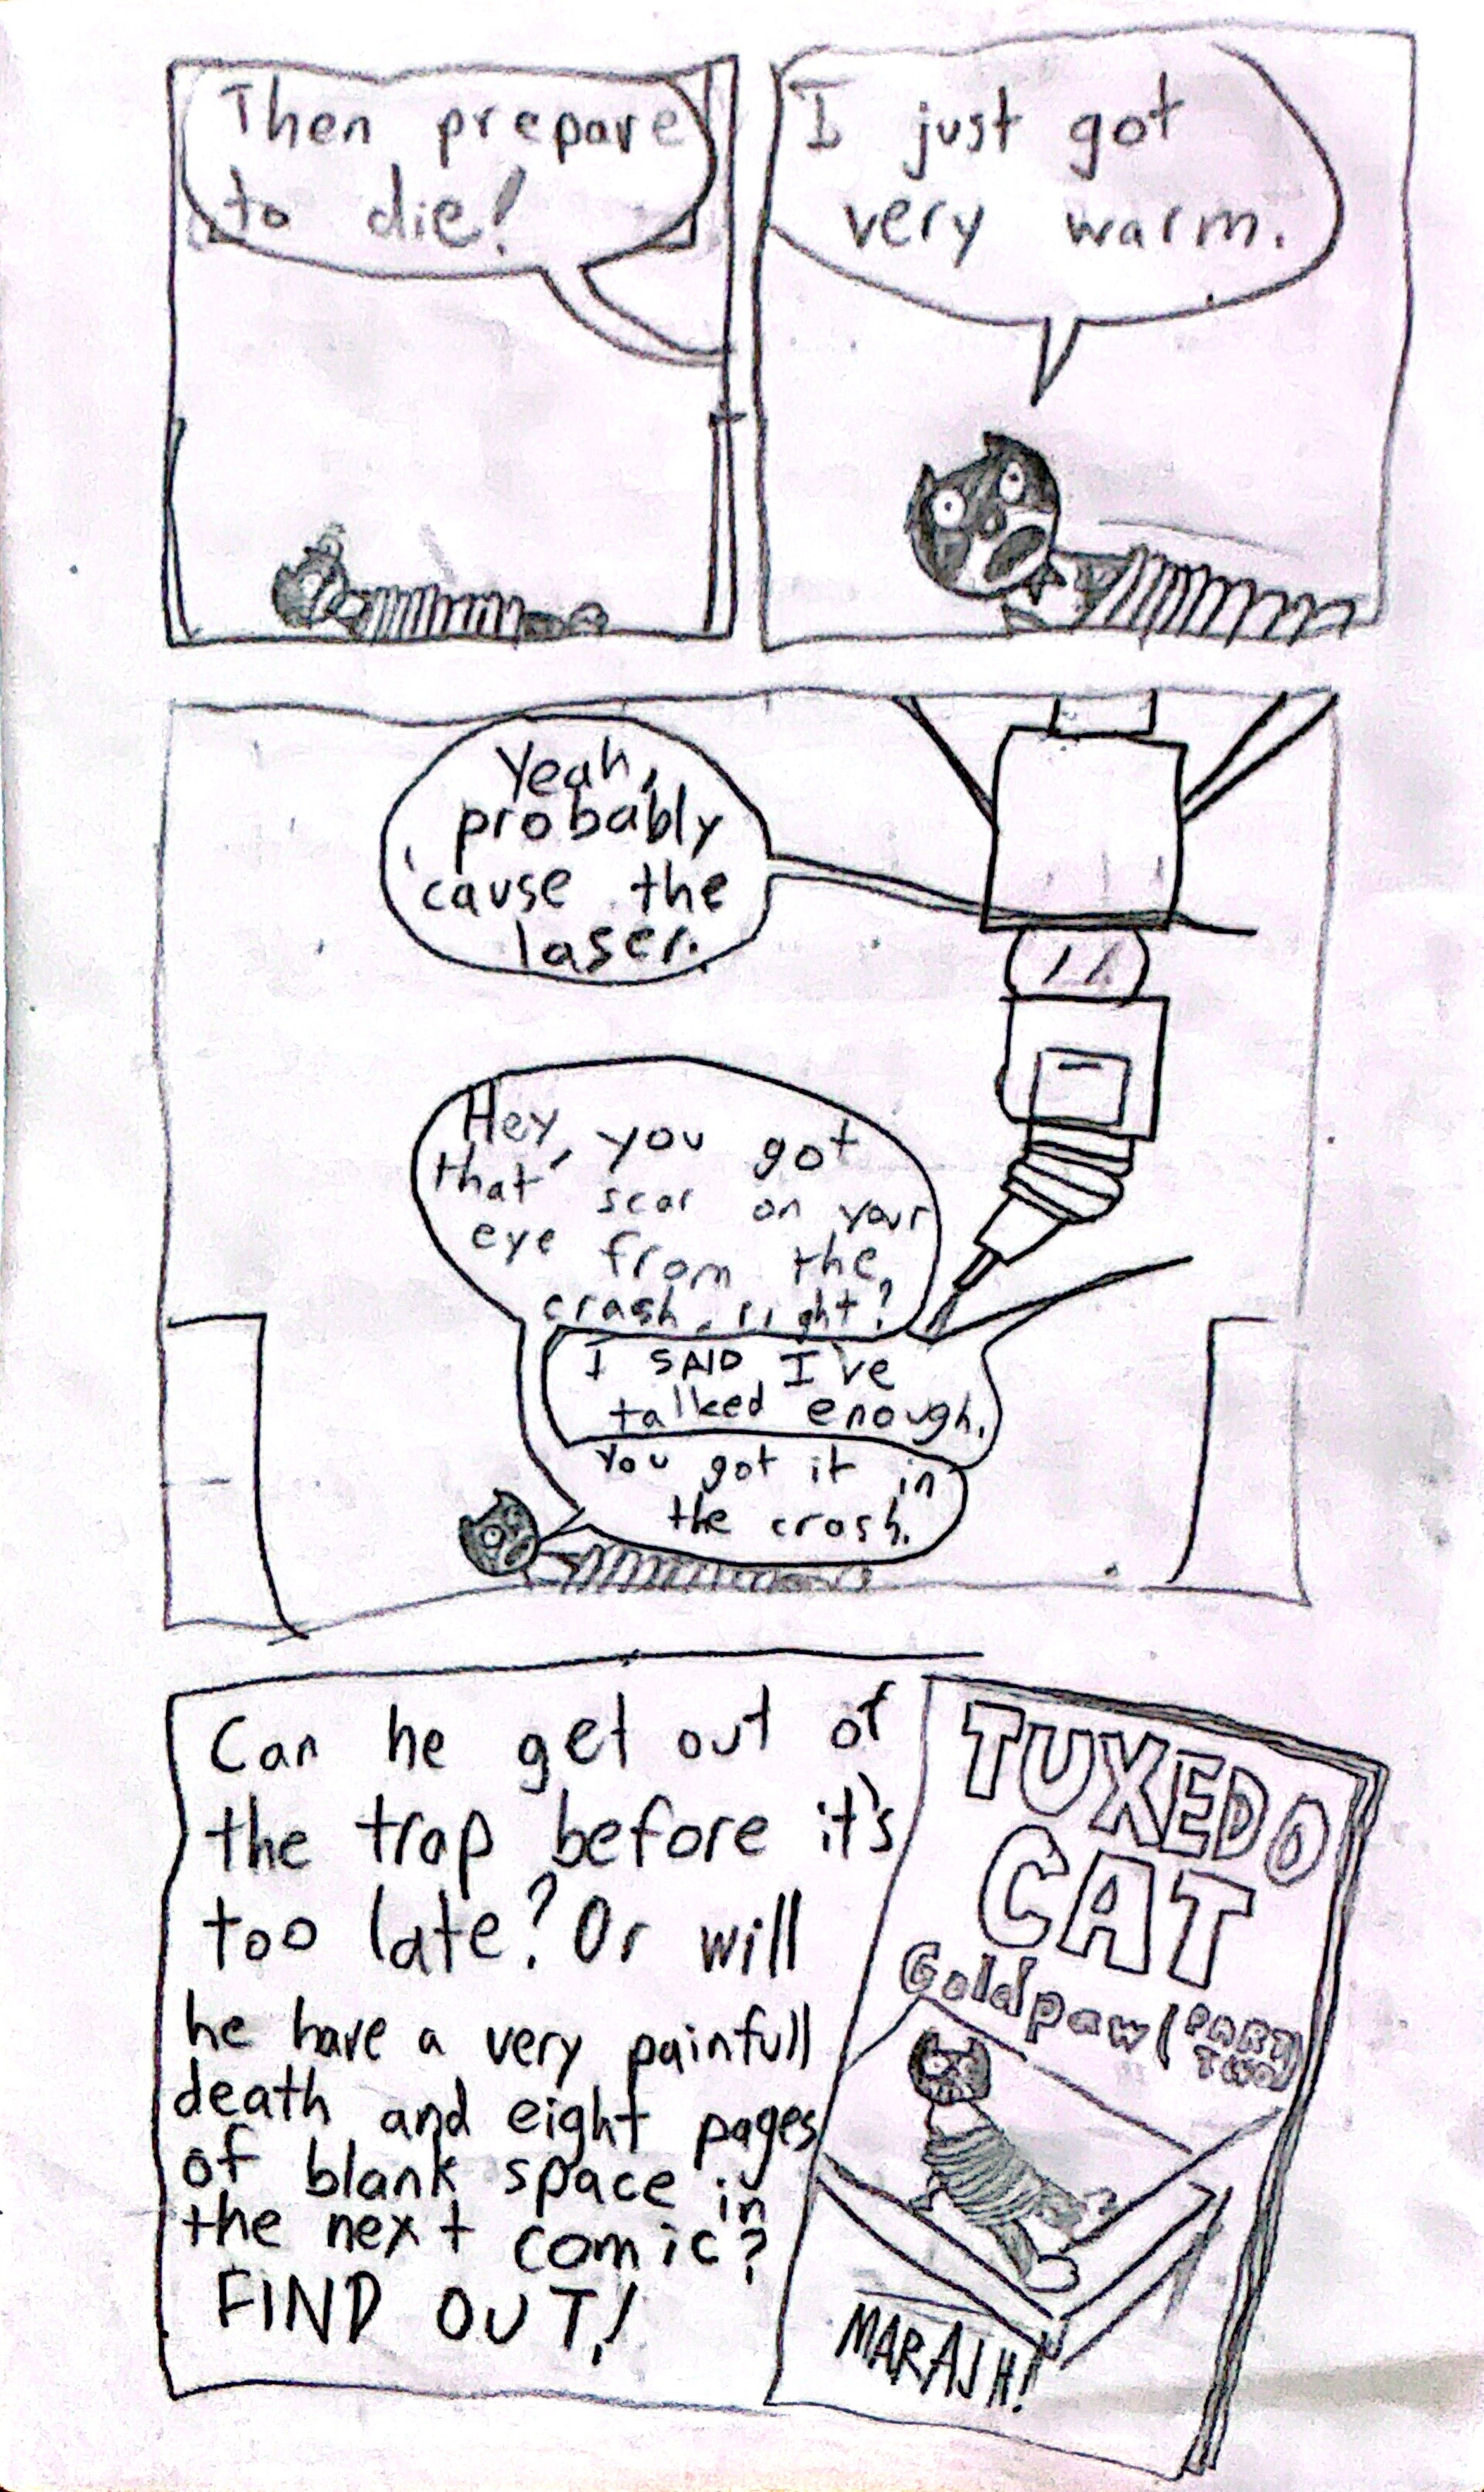 Then prepare
to die!
I just got
very warm.
Yeah,
probably
'cause the
laser.
Hey, you got
that scar on your
eye from the
crash, right?
I SAID I've
talked enough.
You got it in
the crash.
Can he get out of
the trap before it's
too late? Or will
he have a very painfull
death and eight pages
of blank space in
the next comic?
FIND OUT!
TUXEDO
CAT
Goldpaw (PART
TWO)